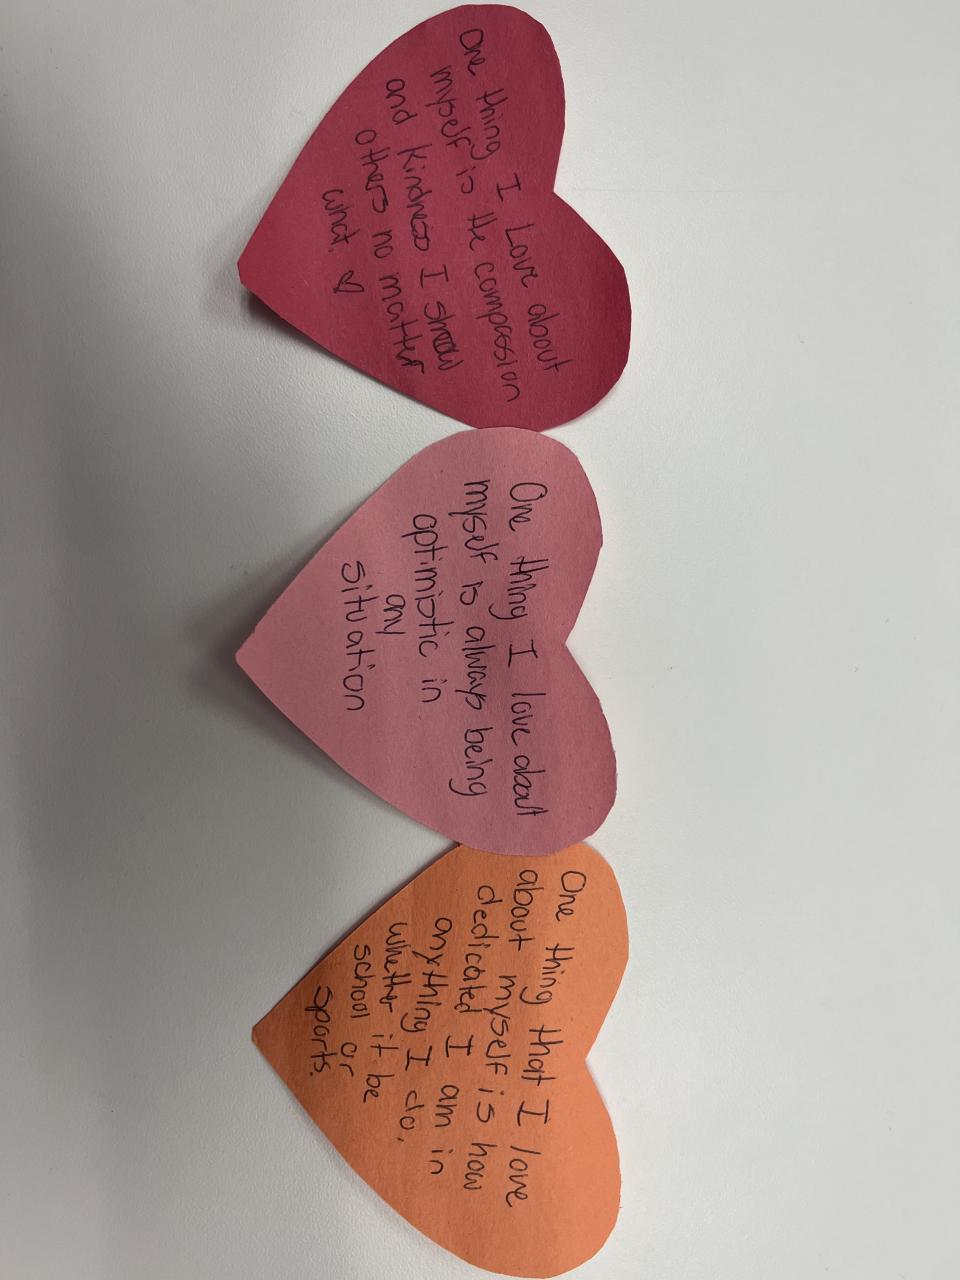 One thing I Love about
myself is the compassion
and kindness I show
others no matter
what. ♡
One thing I love about
myself is always being
optimistic in
any
situation
One thing that I love
about myself is how
dedicated I am in
anything I do,
whether it be
school or
sports.